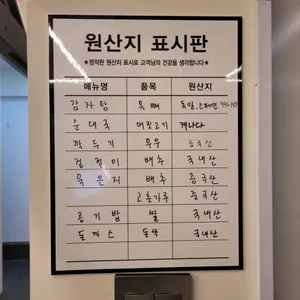 원산지 표시판
★정직한 원산지 표시로 고객님의 건강을 생각합니다★
메뉴명 품목 원산지
감자탕 목뼈 독일, 스페인, 캐나다
순대국 머릿고기 캐나다
깍두기 무우 중국산
겉절이 배추 국내산
묵은지 배추 중국산
고춧가루 중국산
공기밥 쌀 국내산
돈까스 돈육 국내산